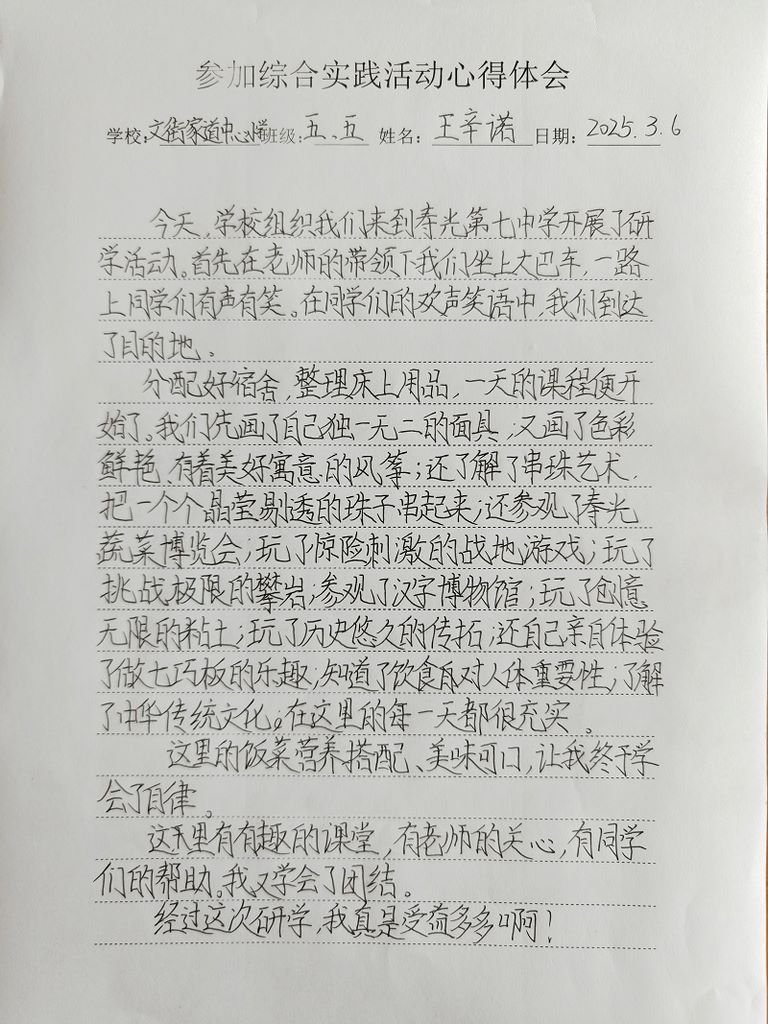 参加综合实践活动心得体会
学校:文街家道中心小学班级:五、五 姓名:王辛诺 日期:2025.3.6
今天,学校组织我们来到寿光第七中学开展了研
学活动。首先在老师的带领下我们坐上大巴车,一路
上同学们有声有笑。在同学们的欢声笑语中,我们到达
了目的地。
分配好宿舍,整理床上用品,一天的课程便开
始了。我们先画了自己独一无二的面具;又画了色彩
鲜艳、有着美好寓意的风筝;还了解了串珠艺术,
把一个个晶莹剔透的珠子串起来;还参观了寿光
蔬菜博览会;玩了惊险刺激的战地游戏;玩了
挑战极限的攀岩;参观了汉字博物馆;玩了创意
无限的粘土;玩了历史悠久的传拓;还自己亲自体验
了做七巧板的乐趣;知道了饮食对人体重要性;了解
了中华传统文化。在这里的每一天都很充实。
这里的饭菜营养搭配、美味可口,让我终于学
会了自律。
这里有有趣的课堂,有老师的关心,有同学
们的帮助。我又学会了团结。
经过这次研学,我真是受益多多啊!